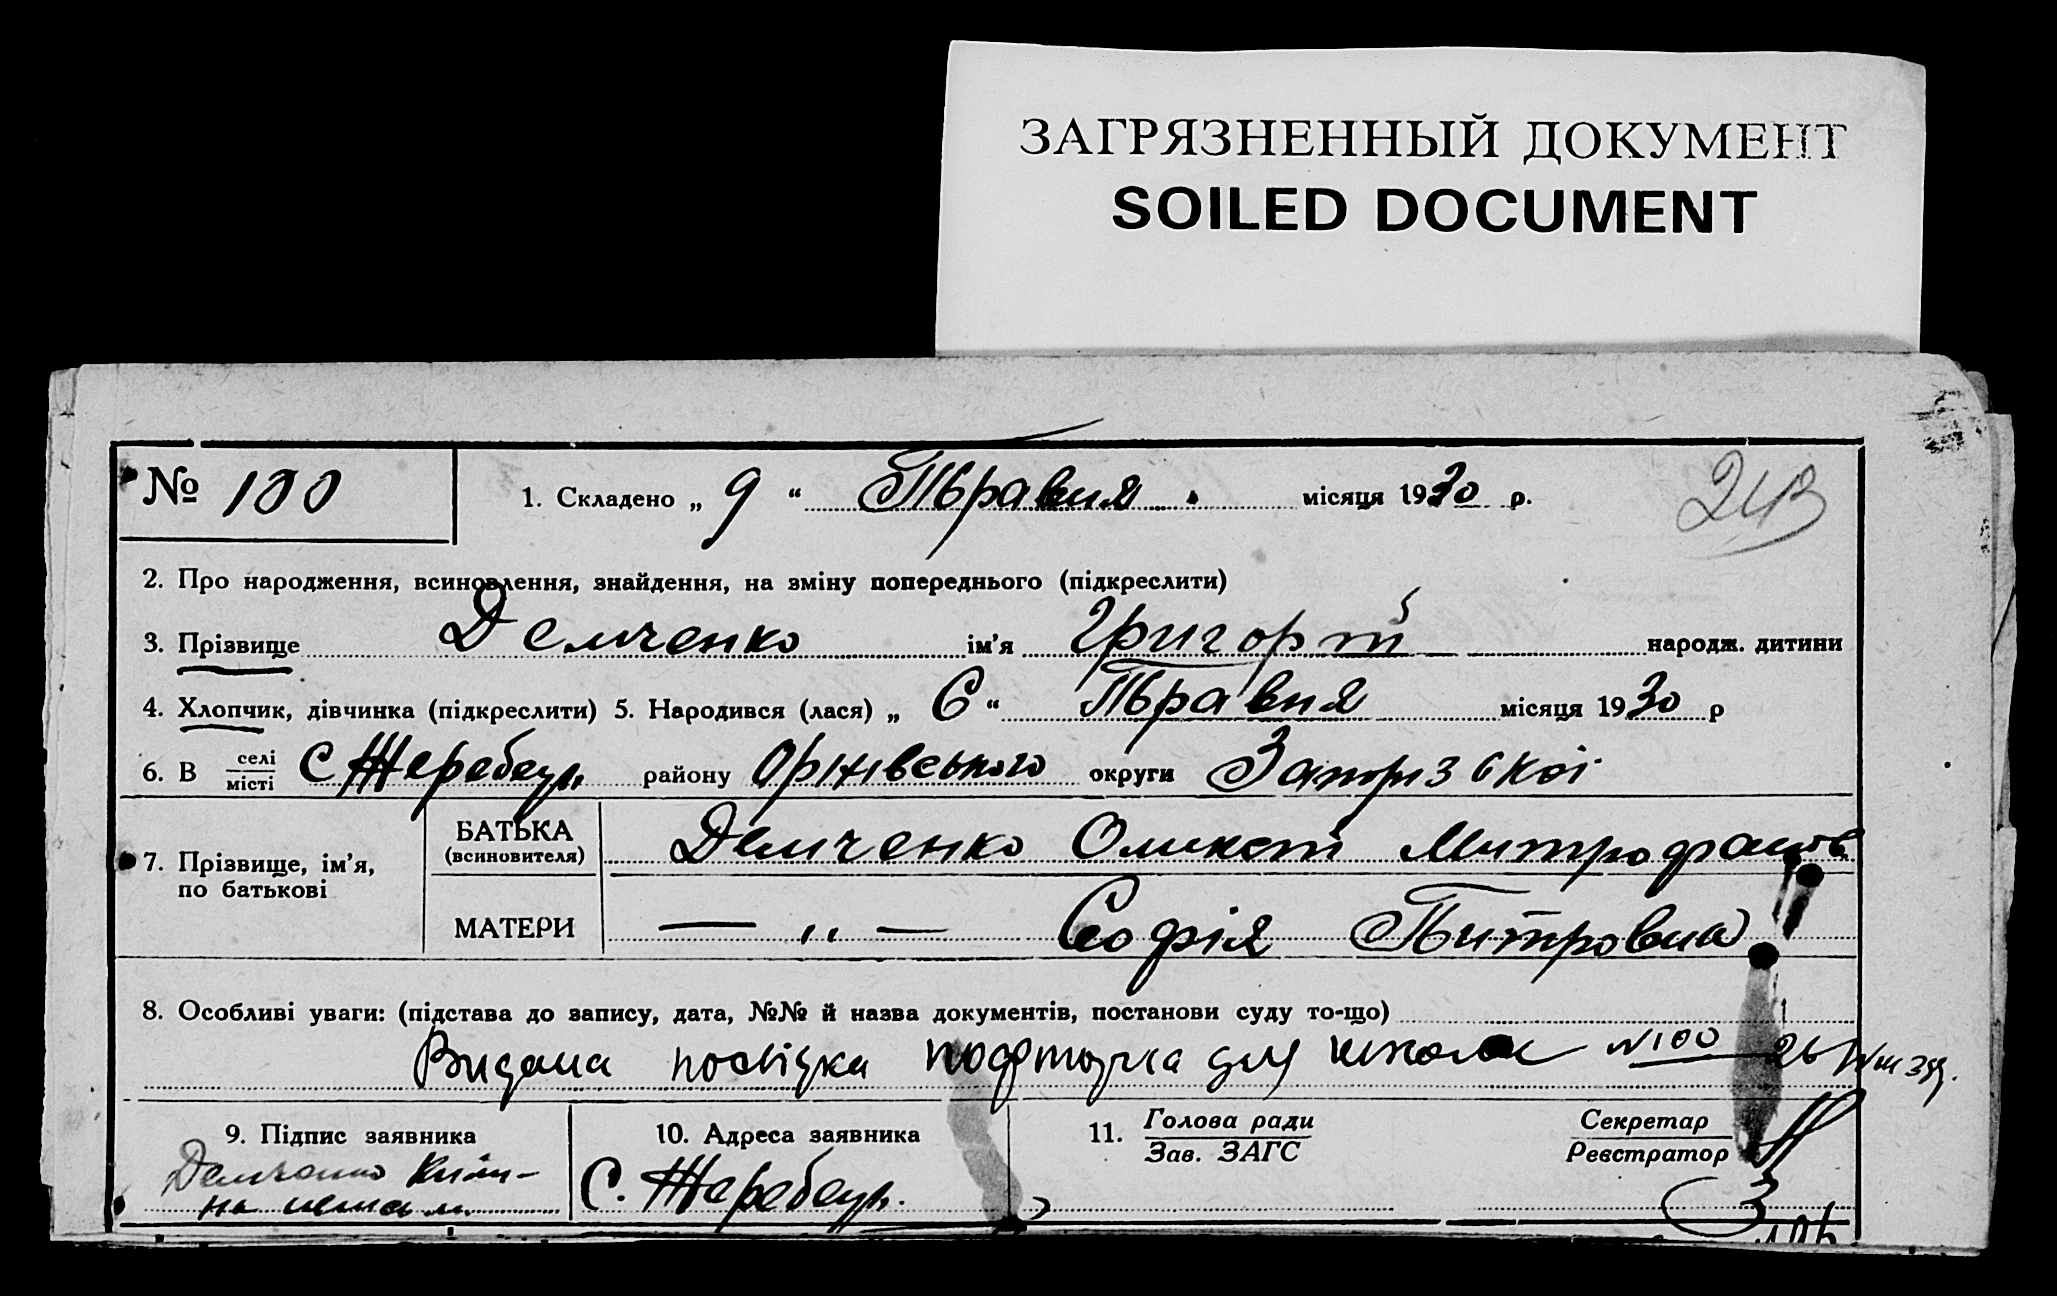 ЗАГРЯЗНЕННЫЙ ДОКУМЕНТ
SOILED DOCUMENT
№ 100
1. Складено „ 9 “ Травня місяця 1930 р.
243
2. Про народження, всиновлення, знайдення, на зміну попереднього (підкреслити)
3. Прізвище Демченко ім’я Григорій народж. дитини
4. Хлопчик, дівчинка (підкреслити) 5. Народився (лася) „ 6 “ Травня місяця 1930 р
6. В селі/місті С Жеребець району Оріхівського округи Запорізької
7. Прізвище, ім’я, по батькові
БАТЬКА (всиновителя) Демченко Олексій Митрофанов
МАТЕРИ — „ — Софія Питровна
8. Особливі уваги: (підстава до запису, дата, №№ й назва документів, постанови суду то-що)
Видана посвідка для школи №100 26
9. Підпис заявника
Демченко
10. Адреса заявника
С. Жеребець.
11. Голова ради
Зав. ЗАГС
Секретар
Реєстратор